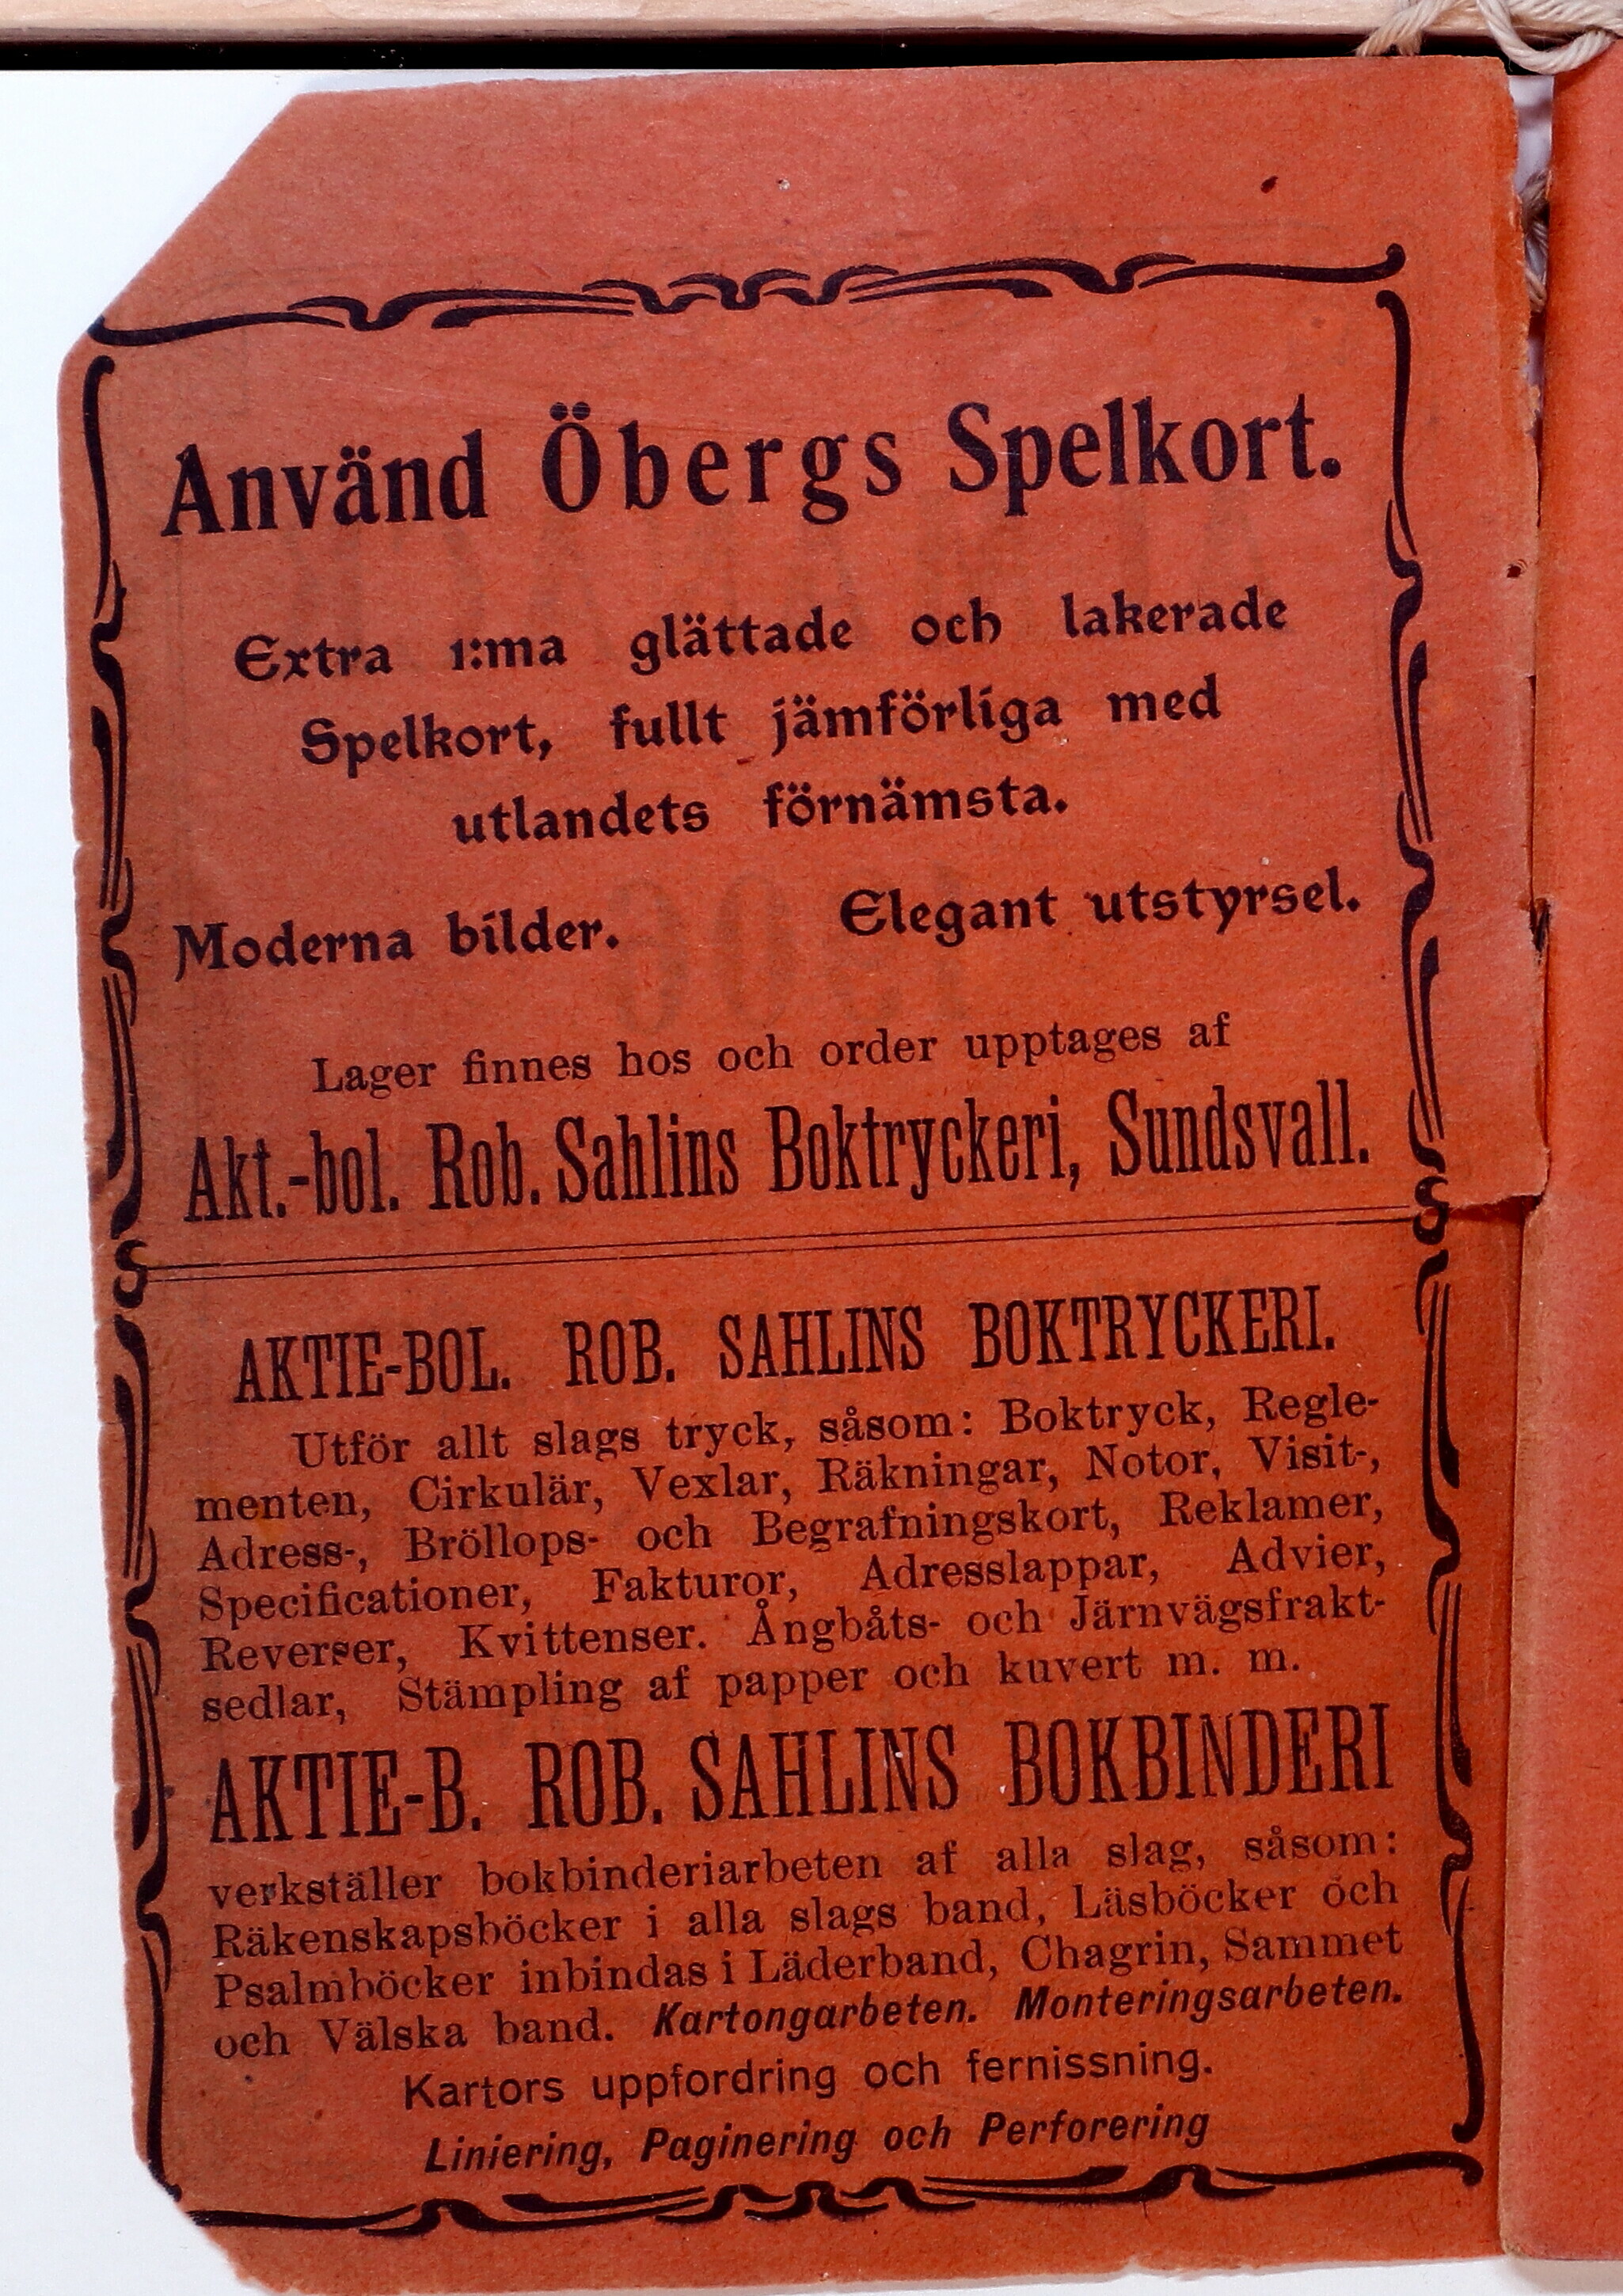 Använd Öbergs Spelkort.
Extra 1:ma glättade och lakerade
Spelkort, fullt jämförliga med
utlandets förnämsta.
Moderna bilder. Elegant utstyrsel.
Lager finnes hos och order upptages af
Akt.-bol. Rob. Sahlins Boktryckeri, Sundsvall.
AKTIE-BOL. ROB. SAHLINS BOKTRYCKERI.
Utför allt slags tryck, såsom: Boktryck, Regle-
menten, Cirkulär, Vexlar, Räkningar, Notor, Visit-,
Adress-, Bröllops- och Begrafningskort, Reklamer,
Specificationer, Fakturor, Adresslappar, Advier,
Reverser, Kvittenser. Ångbåts- och Järnvägsfrakt-
sedlar, Stämpling af papper och kuvert m. m.
AKTIE-B. ROB. SAHLINS BOKBINDERI
verkställer bokbinderiarbeten af alla slag, såsom:
Räkenskapsböcker i alla slags band, Läsböcker och
Psalmböcker inbindas i Läderband, Chagrin, Sammet
och Välska band. Kartongarbeten. Monteringsarbeten.
Kartors uppfordring och fernissning.
Liniering, Paginering och Perforering